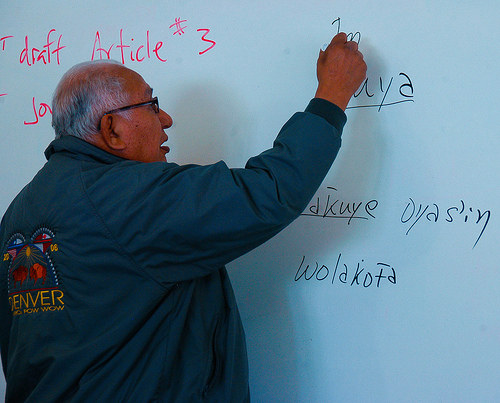 draft Article #3
Im
uya
akuye oyas'iŋ
wolakota
20 08
DENVER
POW WOW